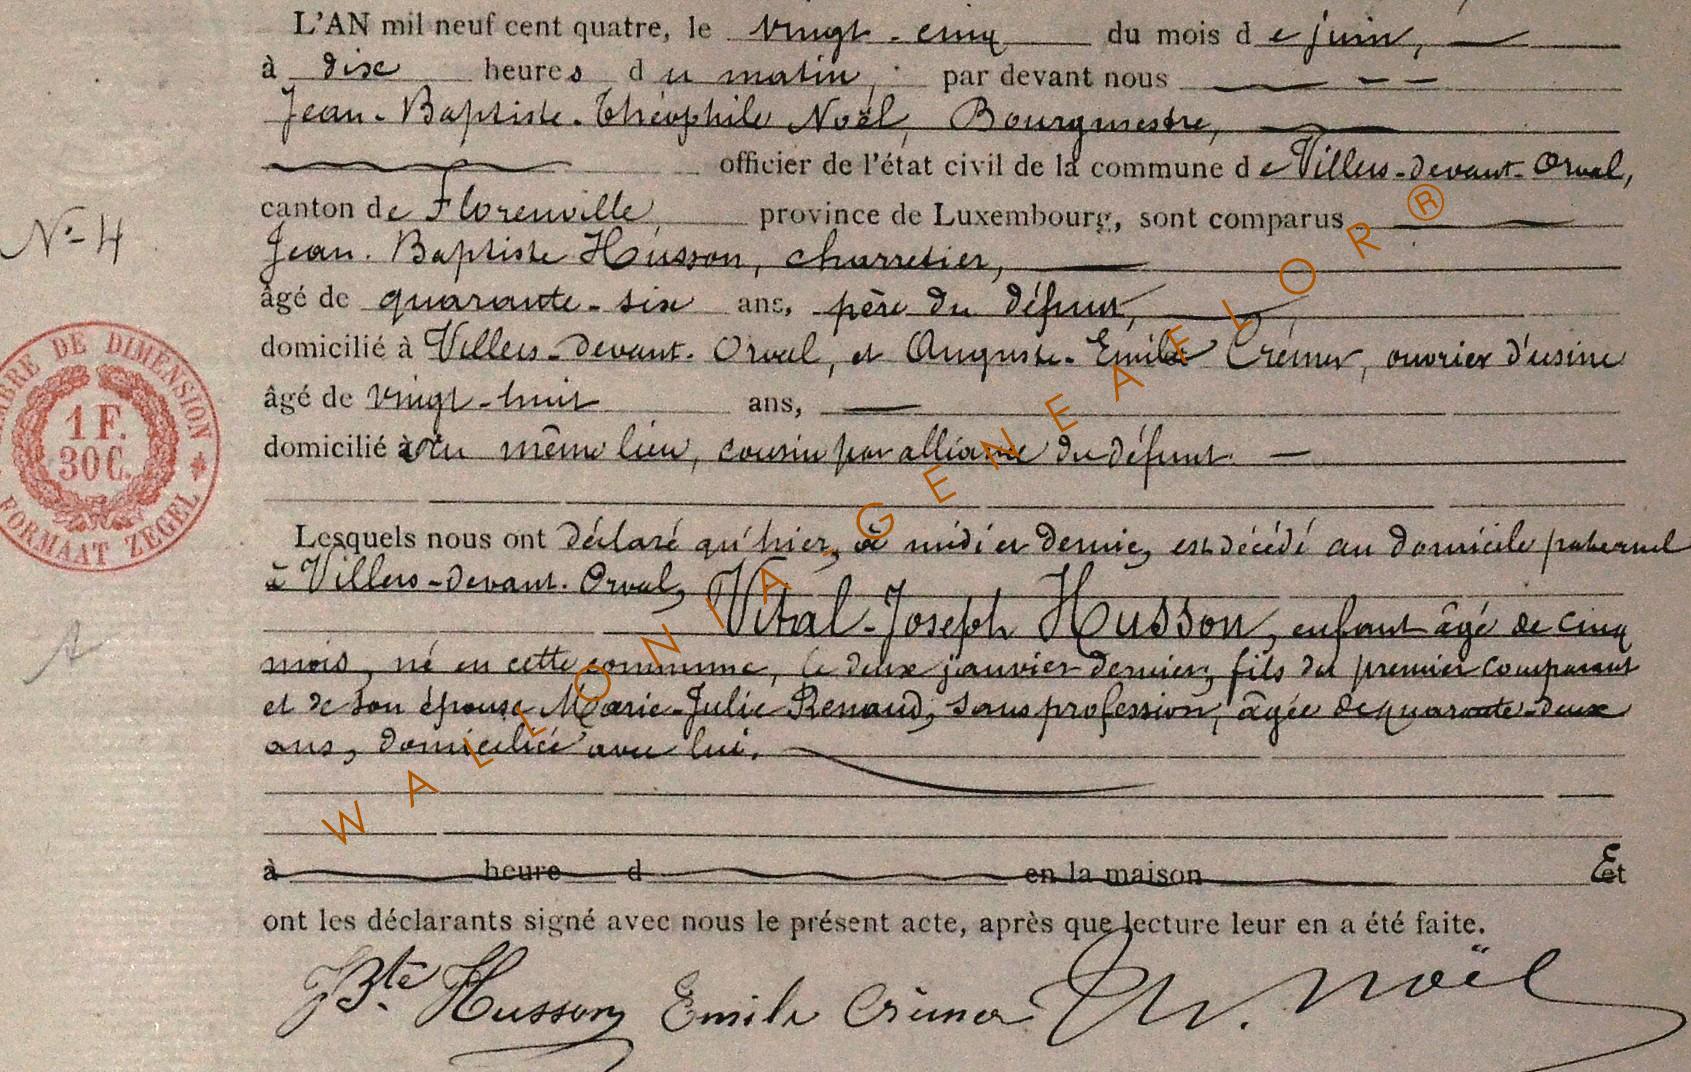 L'AN mil neuf cent quatre, le vingt-cinq du mois de juin,
à dix heures du matin, par devant nous
Jean-Baptiste-Théophile Noël, Bourgmestre,
officier de l'état civil de la commune de Villers-devant-Orval,
canton de Florenville, province de Luxembourg, sont comparus
N° 4
Jean-Baptiste Husson, charretier,
âgé de quarante-six ans, père du défunt,
domicilié à Villers-devant-Orval, et Auguste-Emile Crémer, ouvrier d'usine
âgé de vingt-huit ans,
domicilié au même lieu, cousin par alliance du défunt.
TIMBRE DE DIMENSION
1 F.
30 C.
FORMAAT ZEGEL
Lesquels nous ont déclaré qu'hier, à midi et demie, est décédé au domicile paternel
à Villers-devant-Orval, Vital-Joseph Husson, enfant âgé de cinq
mois, né en cette commune, le deux janvier dernier, fils du premier comparant
et de son épouse Marie-Julie Renaud, sans profession, âgée de quarante-deux
ans, domiciliée avec lui.
à heure d en la maison Et
ont les déclarants signé avec nous le présent acte, après que lecture leur en a été faite.
JBte Husson Emile Crémer Th. Noël
WALLONIA-GENEAFLOR®